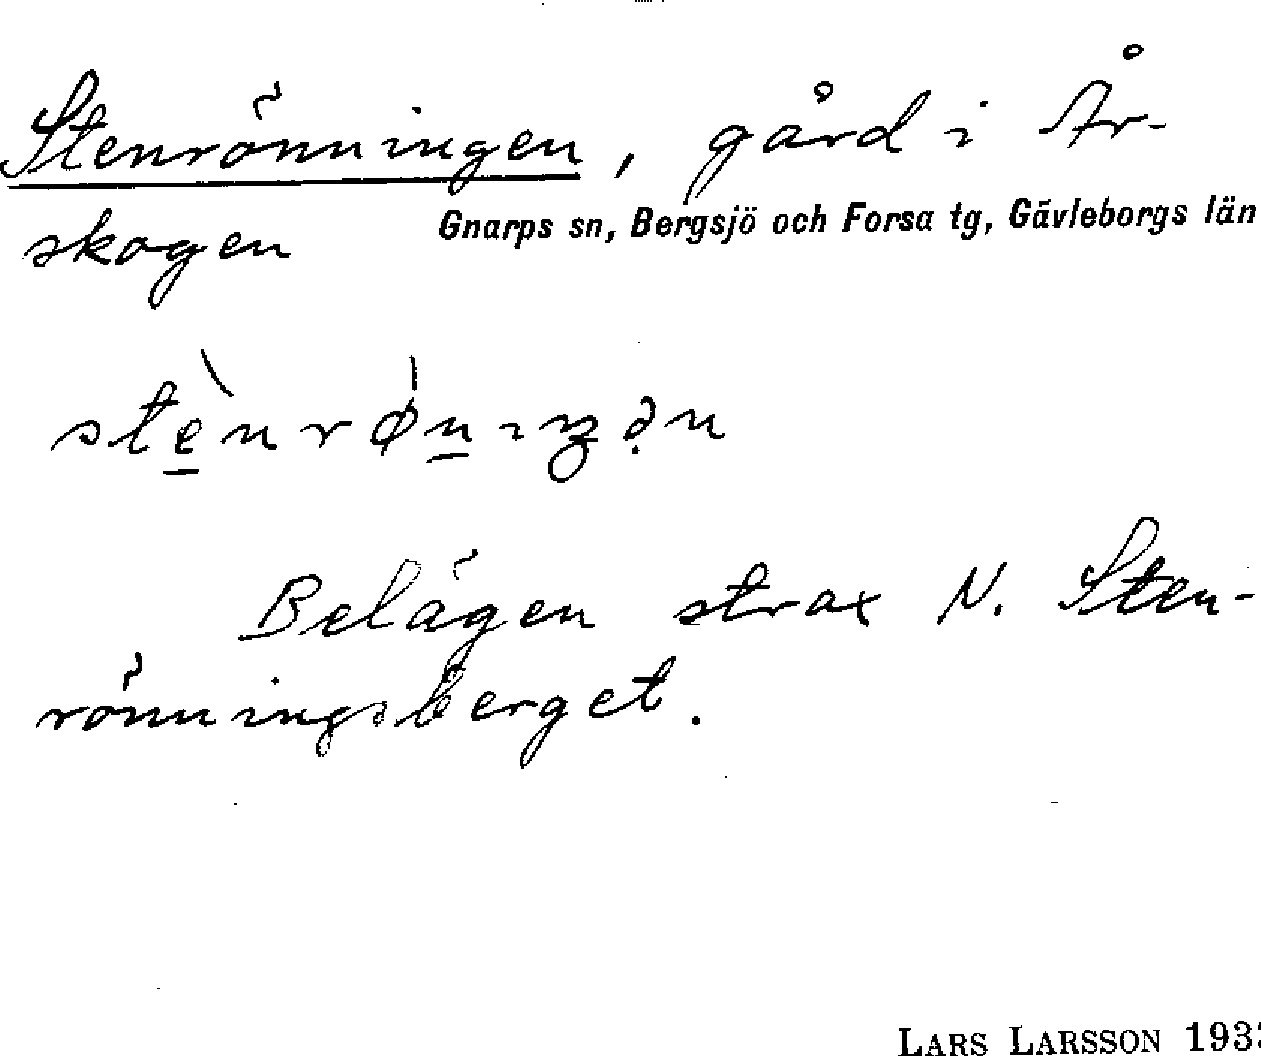 Stenrönningen, gård i År-
skogen
Gnarps sn, Bergsjö och Forsa tg, Gävleborgs län
stènrønıŋən
Belägen strax N. Sten-
rönningsberget.
LARS LARSSON